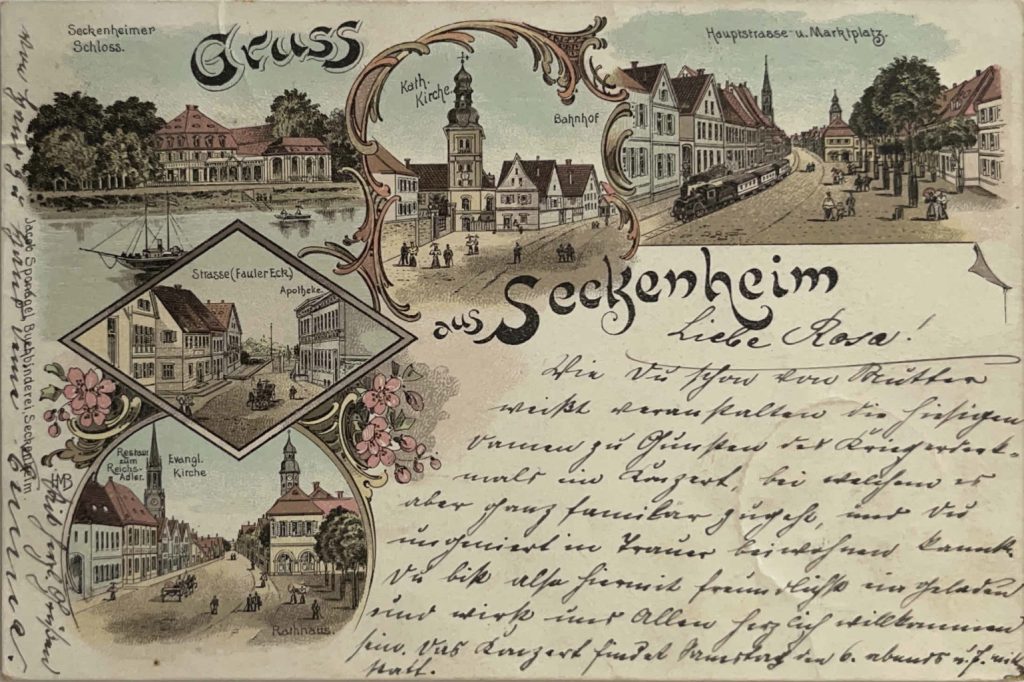 Seckenheimer
Schloss.
Gruss
Kath.
Kirche
Bahnhof
Hauptstrasse u. Marktplatz.
Strasse (Fauler Eck)
Apotheke.
aus Seckenheim
Restaur.
zum
Reichs-
Adler.
Evangl.
Kirche
Rathhaus.
HMB
Jacob Sponagel, Buchbinderei, Seckenheim
Liebe Rosa!
Wie Du schon von Mutter
weißt veranstalten die hiesigen
Damen zu Gunsten des Kriegerdenk-
mals ein Konzert, bei welchem es
aber ganz familiär zugeht, und Du
ungeniert in Trauer beiwohnen kannst.
Du bist also hiermit freundlichst eingeladen
und wirst uns Allen herzlich willkommen
sein. Das Konzert findet Samstag den 6. abends
statt.